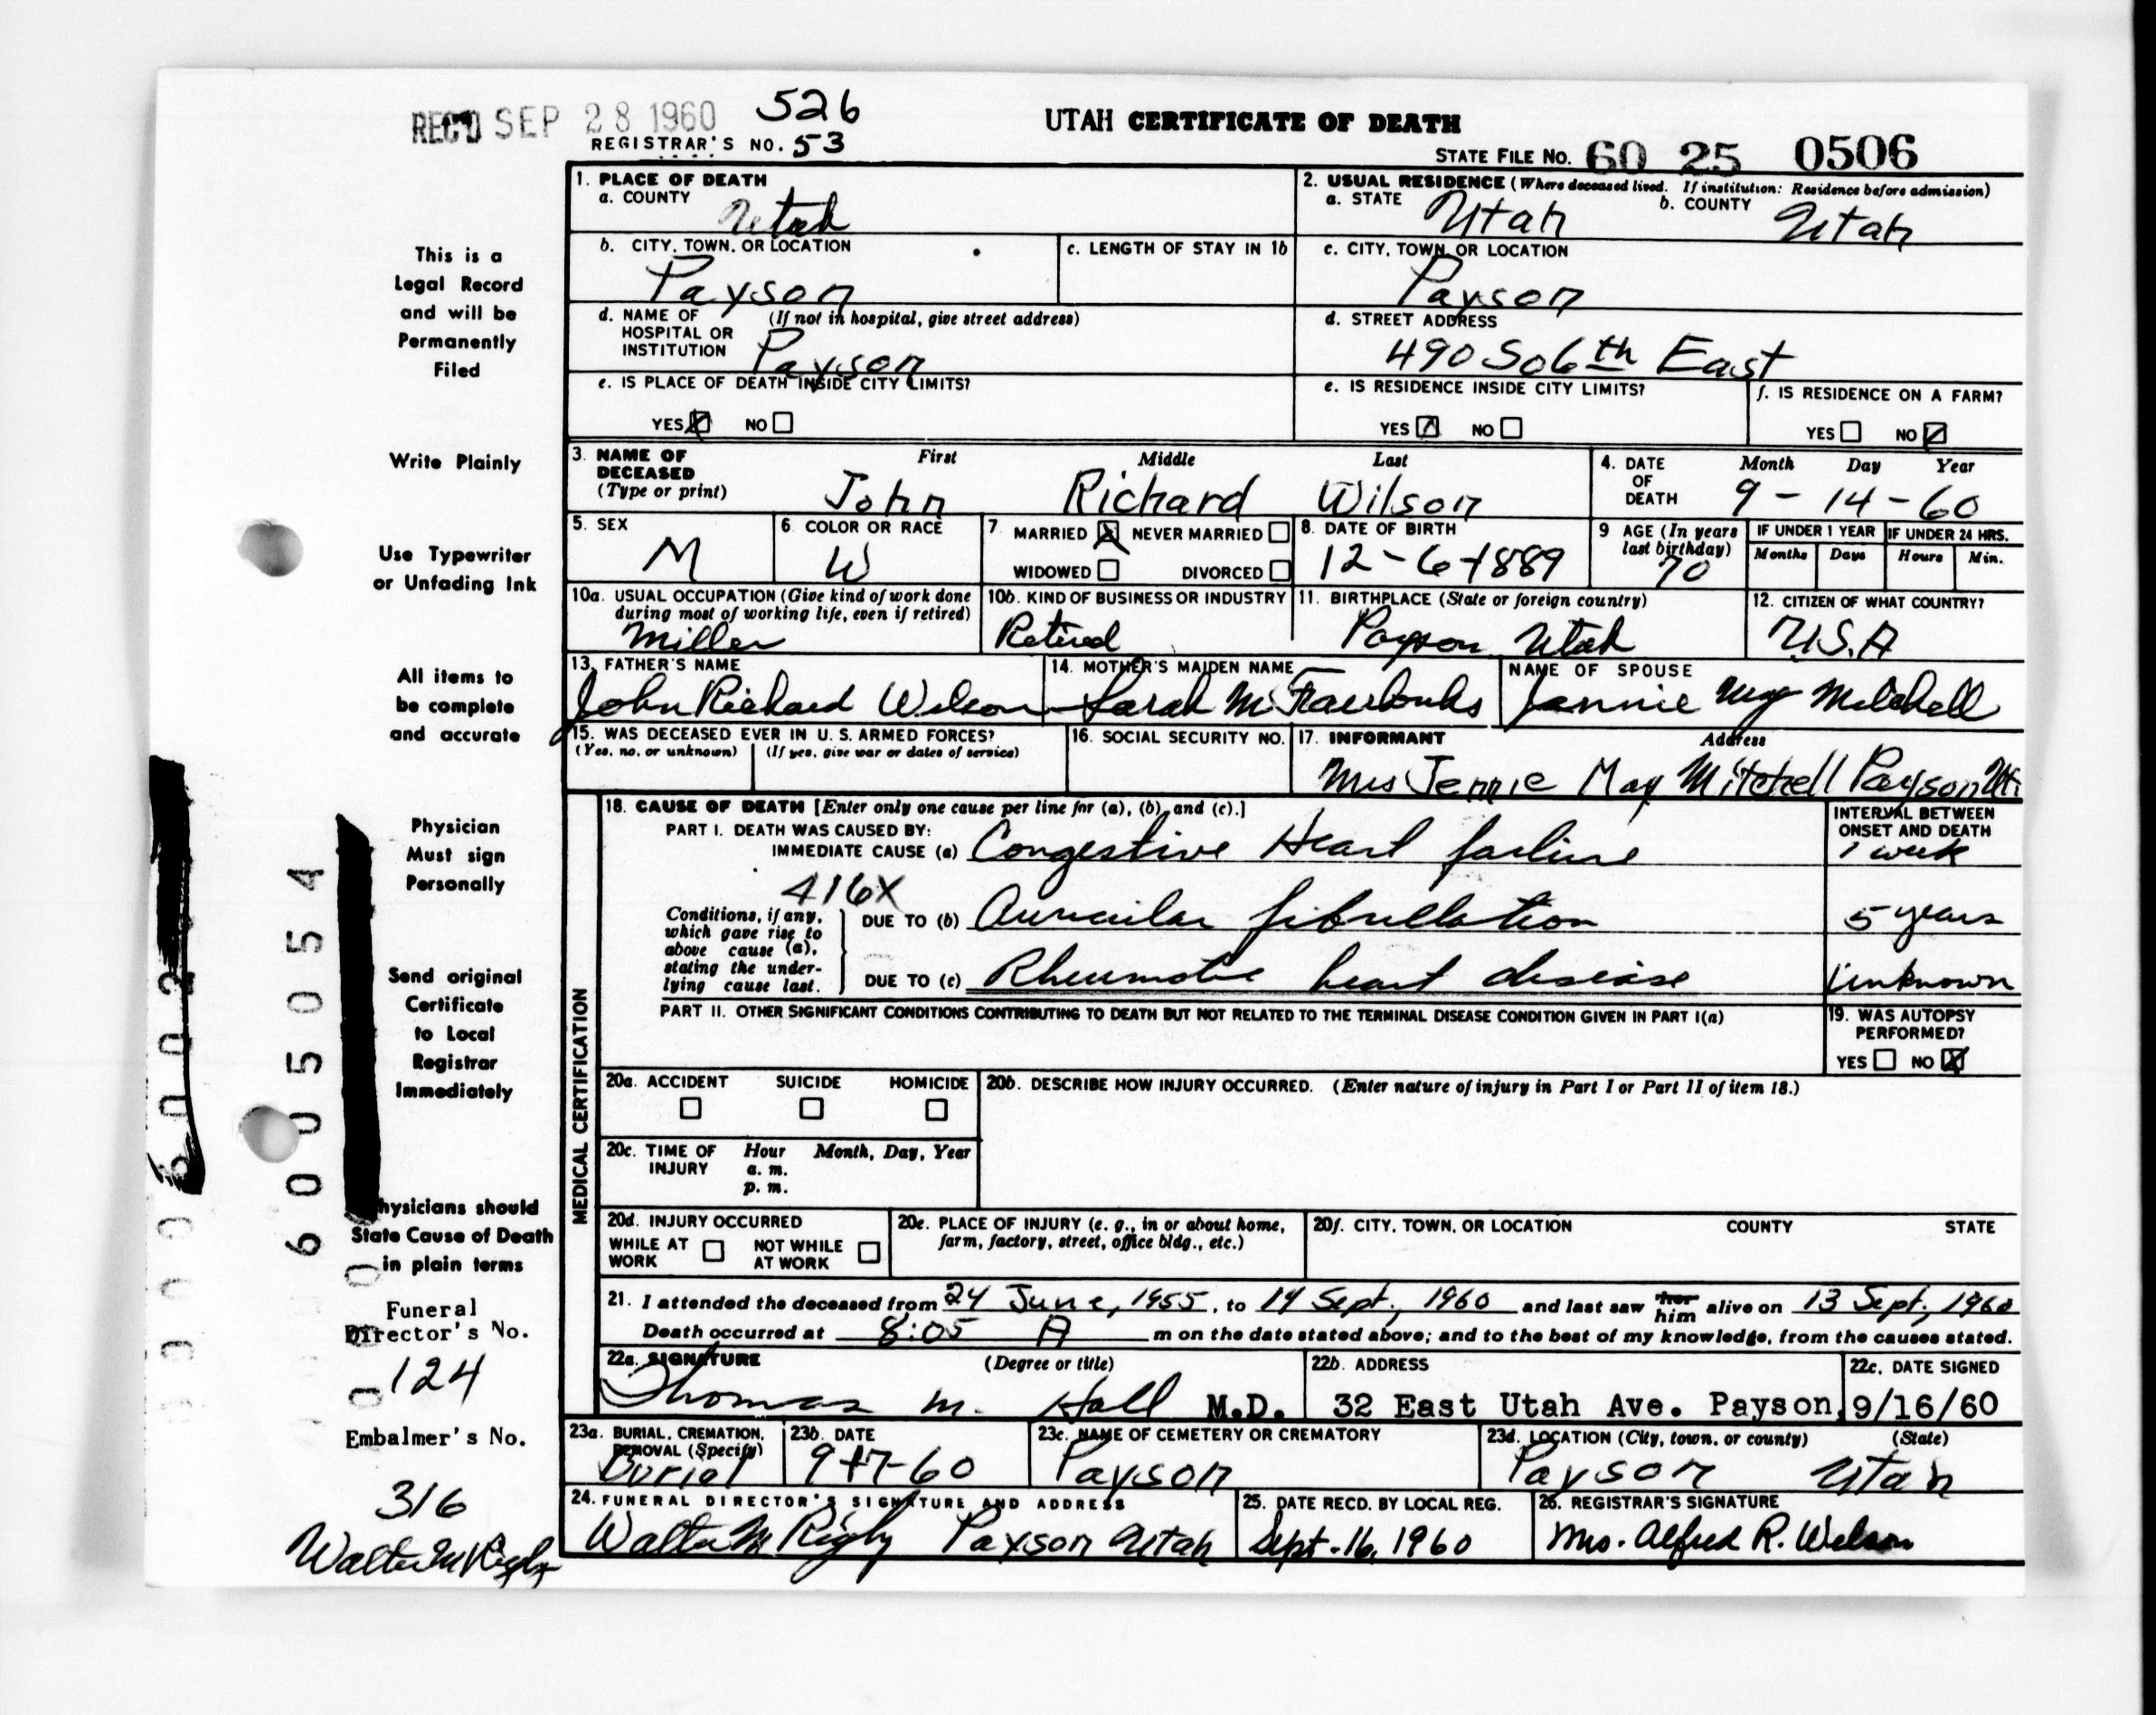 REC'D SEP 28 1960 526
UTAH CERTIFICATE OF DEATH
REGISTRAR'S NO. 53
STATE FILE NO. 60 25 0506
This is a
Legal Record
and will be
Permanently
Filed
Write Plainly
Use Typewriter
or Unfading Ink
All items to
be complete
and accurate
Physician
Must sign
Personally
Send original
Certificate
to Local
Registrar
Immediately
hysicians should
State Cause of Death
in plain terms
Funeral
Director's No.
124
Embalmer's No.
316
Walter M Rigby
6005054
1. PLACE OF DEATH
a. COUNTY
Utah
2. USUAL RESIDENCE (Where deceased lived. If institution: Residence before admission)
a. STATE Utah b. COUNTY Utah
b. CITY, TOWN, OR LOCATION
Payson
c. LENGTH OF STAY IN 1b
c. CITY, TOWN, OR LOCATION
Payson
d. NAME OF (If not in hospital, give street address)
HOSPITAL OR
INSTITUTION Payson
d. STREET ADDRESS
490 So 6th East
e. IS PLACE OF DEATH INSIDE CITY LIMITS?
YES NO
e. IS RESIDENCE INSIDE CITY LIMITS?
YES NO
f. IS RESIDENCE ON A FARM?
YES NO
3. NAME OF
DECEASED
(Type or print)
First Middle Last
John Richard Wilson
4. DATE
OF
DEATH
Month Day Year
9-14-60
5. SEX
M
6. COLOR OR RACE
W
7. MARRIED NEVER MARRIED
WIDOWED DIVORCED
8. DATE OF BIRTH
12-6-1889
9 AGE (In years
last birthday)
70
IF UNDER 1 YEAR
Months Days
IF UNDER 24 HRS.
Hours Min.
10a. USUAL OCCUPATION (Give kind of work done
during most of working life, even if retired)
Miller
10b. KIND OF BUSINESS OR INDUSTRY
Retired
11. BIRTHPLACE (State or foreign country)
Payson Utah
12. CITIZEN OF WHAT COUNTRY?
U.S.A
13. FATHER'S NAME
John Richard Wilson
14. MOTHER'S MAIDEN NAME
Sarah M Fairbanks
NAME OF SPOUSE
Jennie May Mitchell
15. WAS DECEASED EVER IN U. S. ARMED FORCES?
(Yes, no, or unknown) (If yes, give war or dates of service)
16. SOCIAL SECURITY NO.
17. INFORMANT Address
Mrs Jennie May Mitchell Payson Ut.
MEDICAL CERTIFICATION
18. CAUSE OF DEATH [Enter only one cause per line for (a), (b), and (c).]
PART I. DEATH WAS CAUSED BY:
IMMEDIATE CAUSE (a) Congestive Heart failure
INTERVAL BETWEEN
ONSET AND DEATH
1 week
416X
Conditions, if any,
which gave rise to
above cause (a),
stating the under-
lying cause last.
DUE TO (b) Auricular fibrillation 5 years
DUE TO (c) Rheumatic heart disease Unknown
PART II. OTHER SIGNIFICANT CONDITIONS CONTRIBUTING TO DEATH BUT NOT RELATED TO THE TERMINAL DISEASE CONDITION GIVEN IN PART I(a)
19. WAS AUTOPSY
PERFORMED?
YES NO
20a. ACCIDENT SUICIDE HOMICIDE
20b. DESCRIBE HOW INJURY OCCURRED. (Enter nature of injury in Part I or Part II of item 18.)
20c. TIME OF
INJURY
Hour Month, Day, Year
a. m.
p. m.
20d. INJURY OCCURRED
WHILE AT
WORK
NOT WHILE
AT WORK
20e. PLACE OF INJURY (e. g., in or about home,
farm, factory, street, office bldg., etc.)
20f. CITY, TOWN, OR LOCATION COUNTY STATE
21. I attended the deceased from 24 June, 1955, to 14 Sept., 1960 and last saw her him alive on 13 Sept, 1960
Death occurred at 8:05 A m on the date stated above; and to the best of my knowledge, from the causes stated.
22a. SIGNATURE (Degree or title)
Thomas M. Hall M.D.
22b. ADDRESS
32 East Utah Ave. Payson,
22c. DATE SIGNED
9/16/60
23a. BURIAL, CREMATION,
REMOVAL (Specify)
Burial
23b. DATE
9-17-60
23c. NAME OF CEMETERY OR CREMATORY
Payson
23d. LOCATION (City, town, or county) (State)
Payson Utah
24. FUNERAL DIRECTOR'S SIGNATURE AND ADDRESS
Walter M Rigby Payson Utah
25. DATE RECD. BY LOCAL REG.
Sept. 16, 1960
26. REGISTRAR'S SIGNATURE
Mrs. Alfred R. Wilson